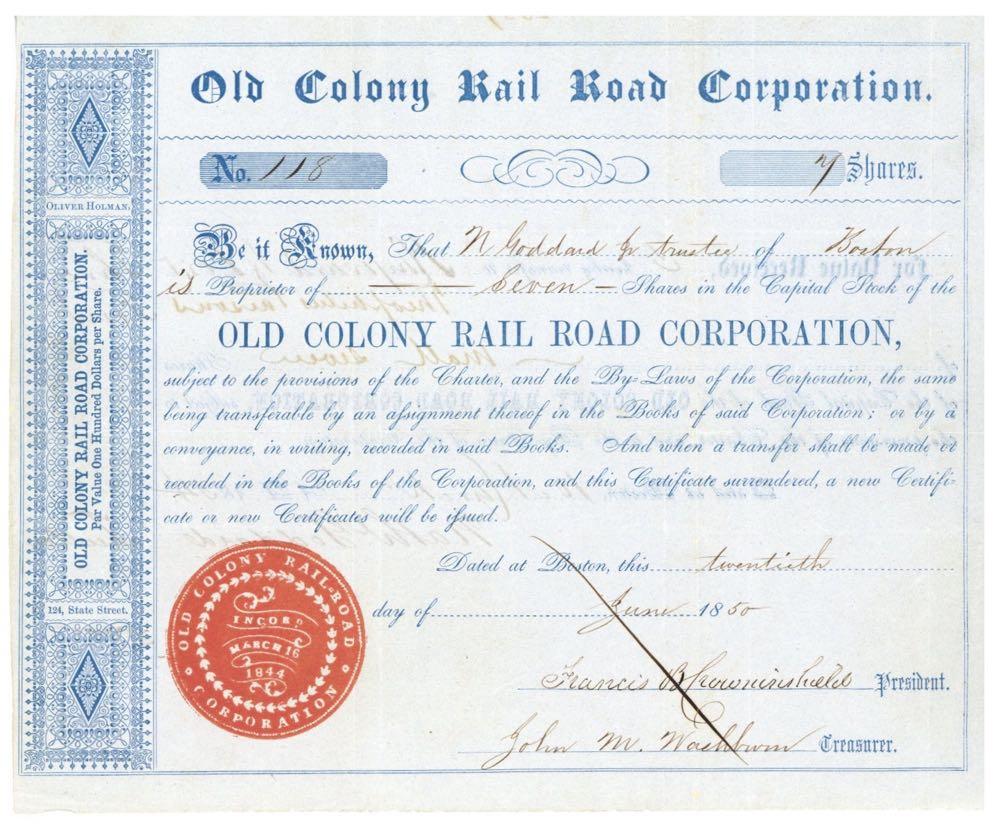 Old Colony Rail Road Corporation.
No. 118
7 Shares.
Be it Known, That N Goddard Jr trustee of Boston
is Proprietor of Seven Shares in the Capital Stock of the
OLD COLONY RAIL ROAD CORPORATION,
subject to the provisions of the Charter, and the By-Laws of the Corporation, the same
being transferable by an assignment thereof in the Books of said Corporation; or by a
conveyance, in writing, recorded in said Books. And when a transfer shall be made or
recorded in the Books of the Corporation, and this Certificate surrendered, a new Certifi-
cate or new Certificates will be issued.
Dated at Boston, this twentieth
day of June 1850
Francis B Crowninshield President.
John M. Washburn Treasurer.
OLIVER HOLMAN,
OLD COLONY RAIL ROAD CORPORATION.
Par Value One Hundred Dollars per Share.
124, State Street.
OLD COLONY RAIL-ROAD
CORPORATION
INCORD
MARCH 16
1844